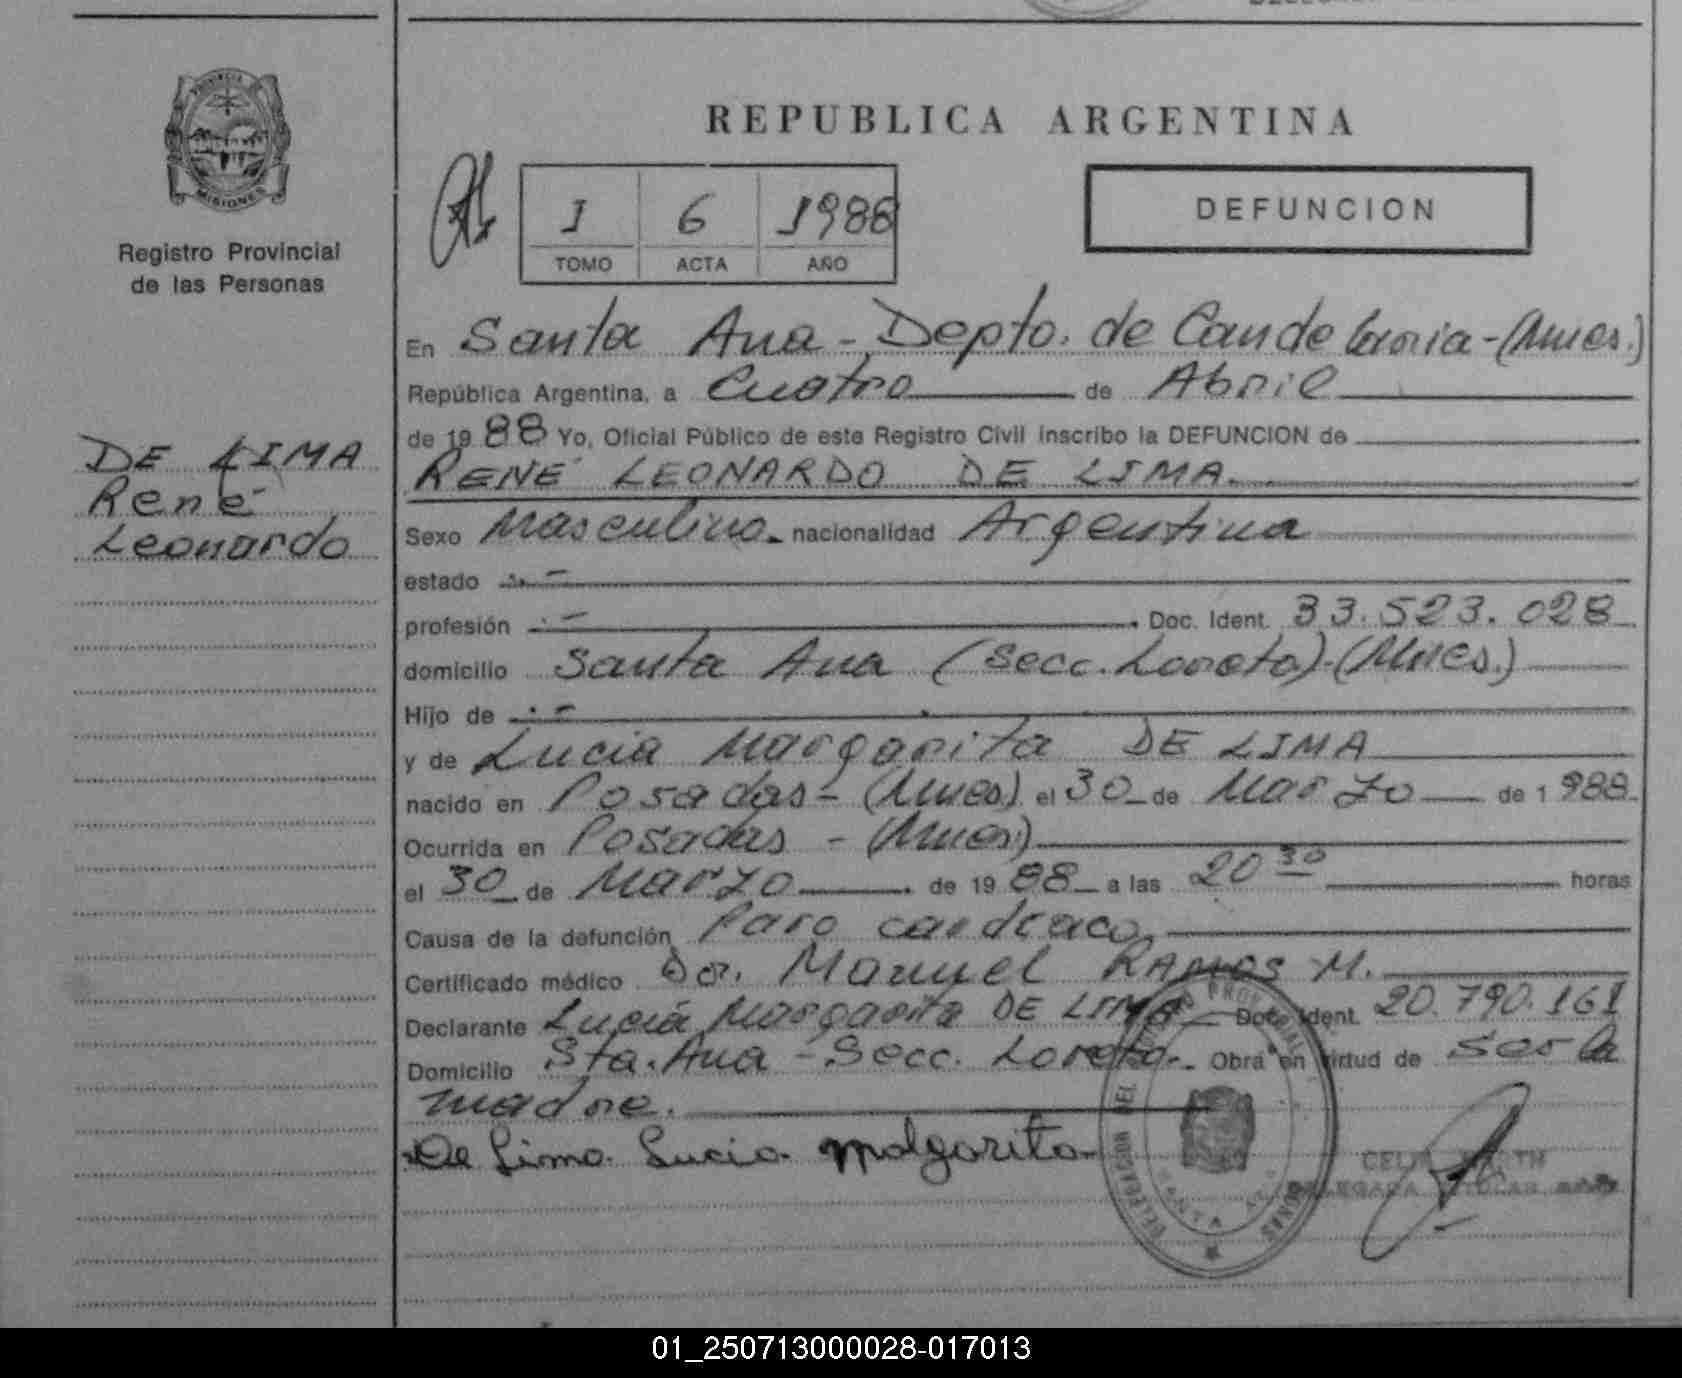 REPUBLICA ARGENTINA
PROVINCIA
MISIONES
Registro Provincial
de las Personas
1 6 1988
TOMO ACTA AÑO
DEFUNCION
DE LIMA
René
Leonardo
En Santa Ana - Depto. de Candelaria - (Mnes.)
República Argentina, a Cuatro de Abril
de 1988 Yo, Oficial Público de este Registro Civil inscribo la DEFUNCION de
RENÉ LEONARDO DE LIMA.
Sexo Masculino. nacionalidad Argentina
estado . -
profesión . - Doc. Ident. 33.523.028
domicilio Santa Ana (Secc. Loreto) - (Mnes.)
Hijo de . -
y de Lucia Margarita DE LIMA
nacido en Posadas - (Mnes) el 30 de Marzo de 1988
Ocurrida en Posadas - (Mnes)
el 30 de Marzo de 1988 a las 20 30 horas
Causa de la defunción Paro cardiaco
Certificado médico Dr. Manuel RAMOS M.
Declarante Lucia Margarita DE LIMA Doc. Ident. 20.790.161
Domicilio Sta. Ana - Secc. Loreto. Obra en virtud de ser la
madre.
De Lima Lucia Malgarita
SANTA ANA
01_250713000028-017013